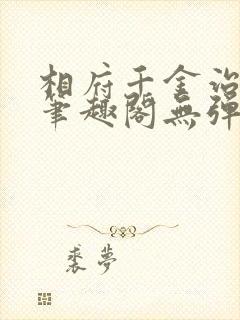 相府千金治
筆趣閣無彈
裘夢